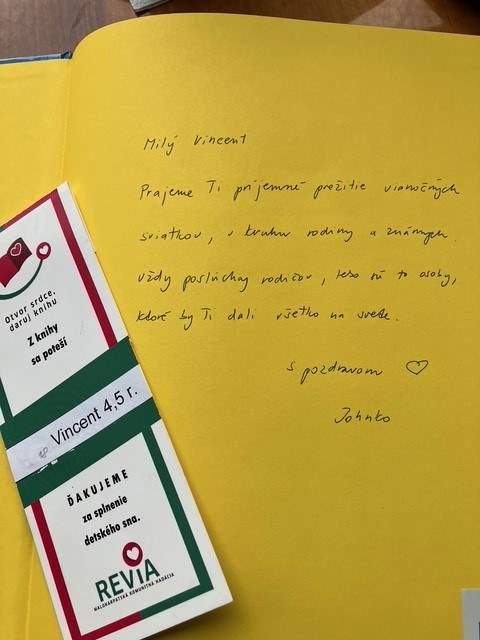 Milý Vincent
Prajeme Ti príjemné prežitie vianočných
sviatkov, v kruhu rodiny a známych.
Vždy poslúchaj rodičov, lebo sú to osoby,
ktoré by Ti dali všetko na svete.
S pozdravom ♡
Johnko
Otvor srdce,
daruj knihu
Z knihy
sa poteší
Vincent 4,5 r.
ĎAKUJEME
za splnenie
detského sna.
REVIA
MALOKARPATSKÁ KOMUNITNÁ NADÁCIA